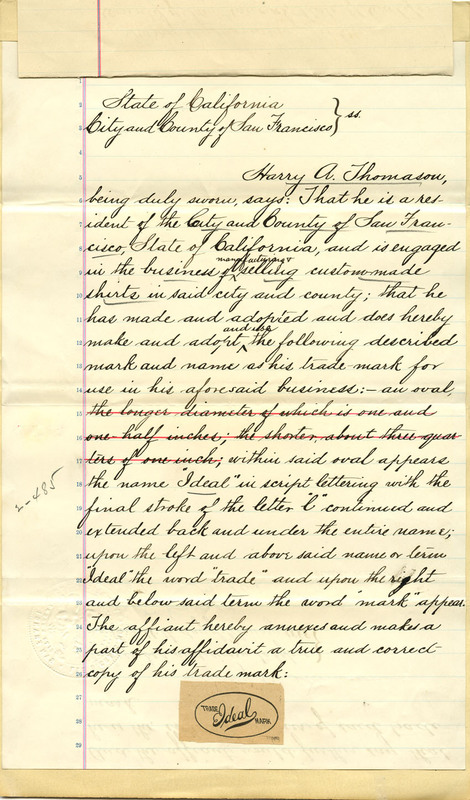 State of California
City and County of San Francisco } ss.
Harry A. Thomason,
being duly sworn, says: That he is a res-
ident of the City and County of San Fran-
cisco, State of California, and is engaged
manufacturing &
in the business of selling custom-made
shirts in said city and county; that he
has made and adopted and does hereby
and use
make and adopt the following described
mark and name as his trade mark for
use in his aforesaid business:— an oval,
the longer diameter of which is one and
one half inches; the shorter, about three quar
ters of one inch; within said oval appears
the name "Ideal" in script lettering with the
final stroke of the letter "l" continued and
extended back and under the entire name;
upon the left and above said name or term
"Ideal" the word "trade" and upon the right
and below said term the word "mark" appear.
The affiant hereby annexes and makes a
part of his affidavit a true and correct
copy of his trade mark:
2-485
TRADE
Ideal
MARK
2
3
4
5
6
7
8
9
10
11
12
13
14
15
16
17
18
19
20
21
22
23
24
25
26
27
28
29